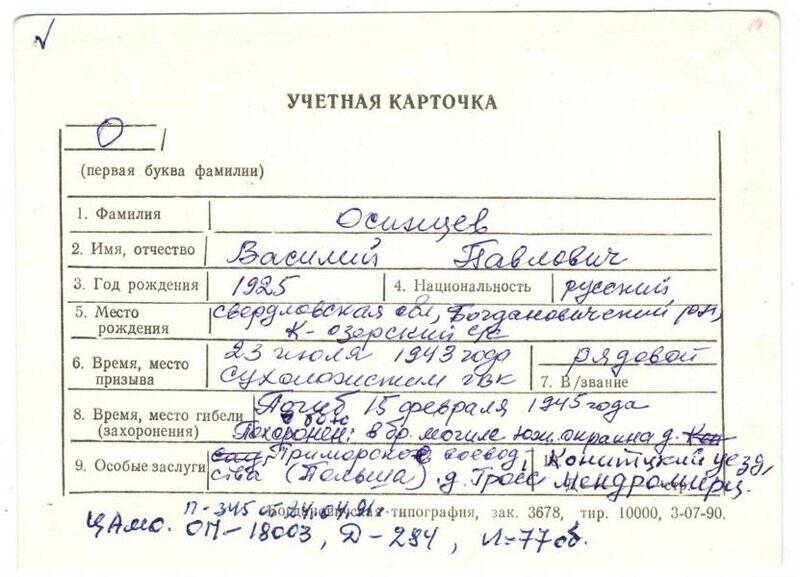 УЧЕТНАЯ КАРТОЧКА
О /
(первая буква фамилии)
1. Фамилия Осинцев
2. Имя, отчество Василий Павлович
3. Год рождения 1925 4. Национальность русский
5. Место рождения свердловская обл, Богдановичский р-н,
К-озерский с/с
6. Время, место призыва 23 июля 1943 года
Сухоложским гвк
рядовой
7. В/звание
8. Время, место гибели (захоронения) Погиб 15 февраля 1945 года
в бою
Похоронен: в бр. могиле юж. окраина д.
9. Особые заслуги Приморское воевод, Конитцкий уезд,
ства (Польша). д. Гросс Мендромирц.
П-345 от 24.04.91г
типография, зак. 3678, тир. 10000, 3-07-90.
ЦАМО. ОП-18003, Д-284, Л-77об.